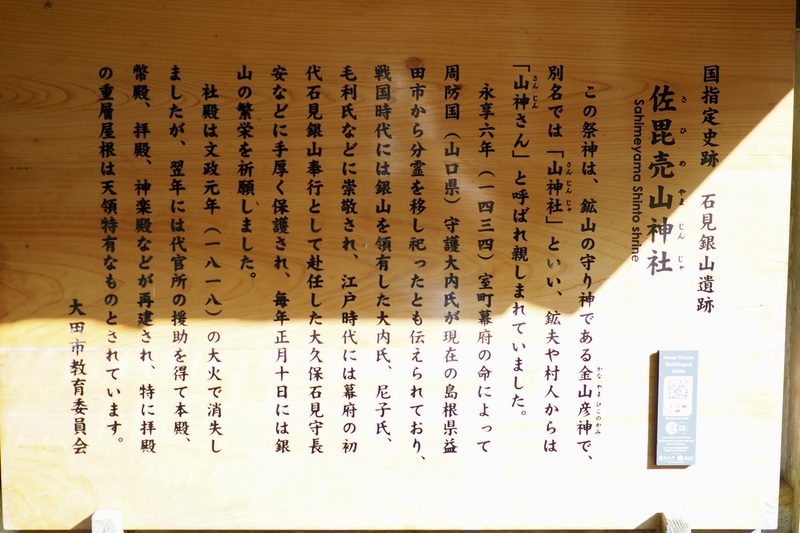 国指定史跡　石見銀山遺跡
佐毘売山神社
さ ひ め やま じん じゃ
Sahimeyama Shinto shrine
この祭神は、鉱山の守り神である金山彦神で、
かな やま ひこのかみ
別名では「山神社」といい、鉱夫や村人からは
さんじんじゃ
「山神さん」と呼ばれ親しまれていました。
さんじん
永享六年（一四三四）室町幕府の命によって
周防国（山口県）守護大内氏が現在の島根県益
田市から分霊を移し祀ったとも伝えられており、
戦国時代には銀山を領有した大内氏、尼子氏、
毛利氏などに崇敬され、江戸時代には幕府の初
代石見銀山奉行として赴任した大久保石見守長
安などに手厚く保護され、毎年正月十日には銀
山の繁栄を祈願しました。
社殿は文政元年（一八一八）の大火で消失し
ましたが、翌年には代官所の援助を得て本殿、
幣殿、拝殿、神楽殿などが再建され、特に拝殿
の重層屋根は天領特有なものとされています。
大田市教育委員会